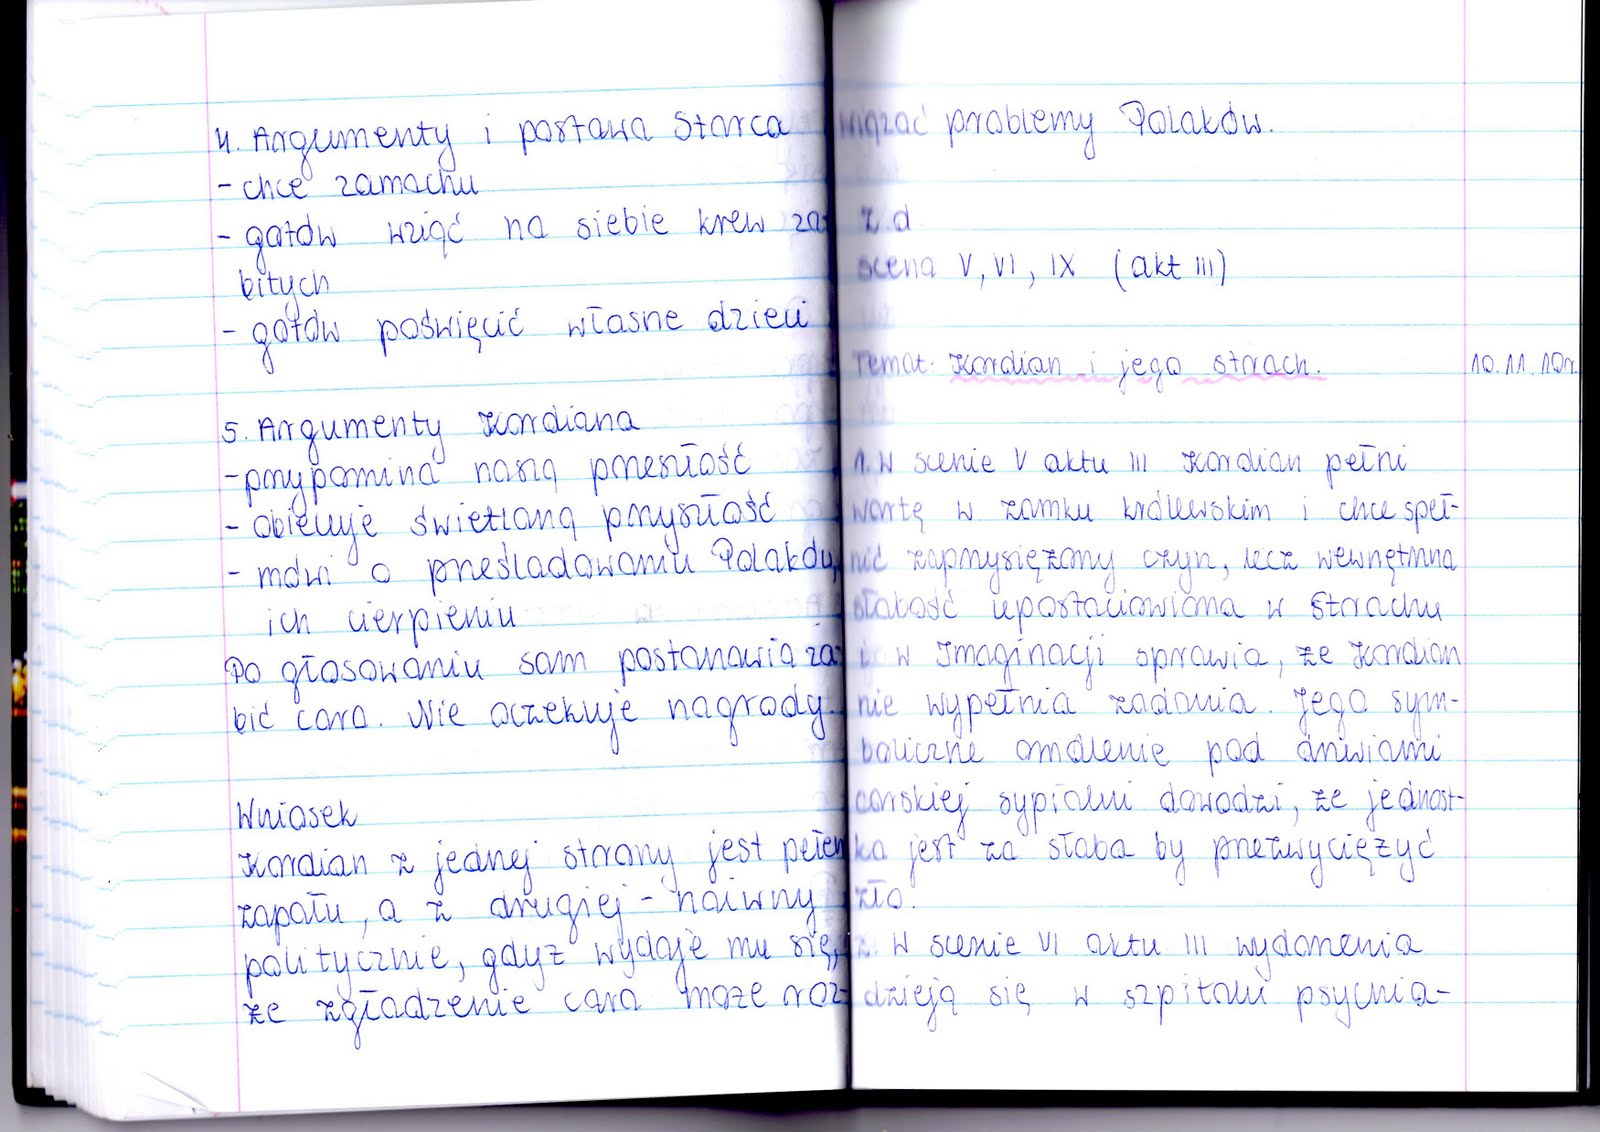 4. Argumenty i postawa Starca
- chce zamachu
- gotów wziąć na siebie krew za-
bitych
- gotów poświęcić własne dzieci
5. Argumenty Kordiana
- przypomina naszą przeszłość
- obiecuje świetlaną przyszłość
- mówi o prześladowaniu Polaków,
ich cierpieniu
Po głosowaniu sam postanawia za-
bić cara. Nie oczekuje nagrody.
Wniosek
Kordian z jednej strony jest pełen
zapału, a z drugiej - naiwny
politycznie, gdyż wydaje mu się,
że zgładzenie cara może roz-
wiązać problemy Polaków.
z.d
scena V, VI, IX (akt III)
Temat: Kordian i jego strach. 10.11.10r.
1. W scenie V aktu III Kordian pełni
wartę w zamku królewskim i chce speł-
nić zaprzysiężony czyn, lecz wewnętrzna
słabość upostaciowiona w Strachu
i w Imaginacji sprawia, że Kordian
nie wypełnia zadania. Jego sym-
boliczne omdlenie pod drzwiami
carskiej sypialni dowodzi, że jednost-
ka jest za słaba by przezwyciężyć
zło.
2. W scenie VI aktu III wydarzenia
dzieją się w szpitalu psychia-